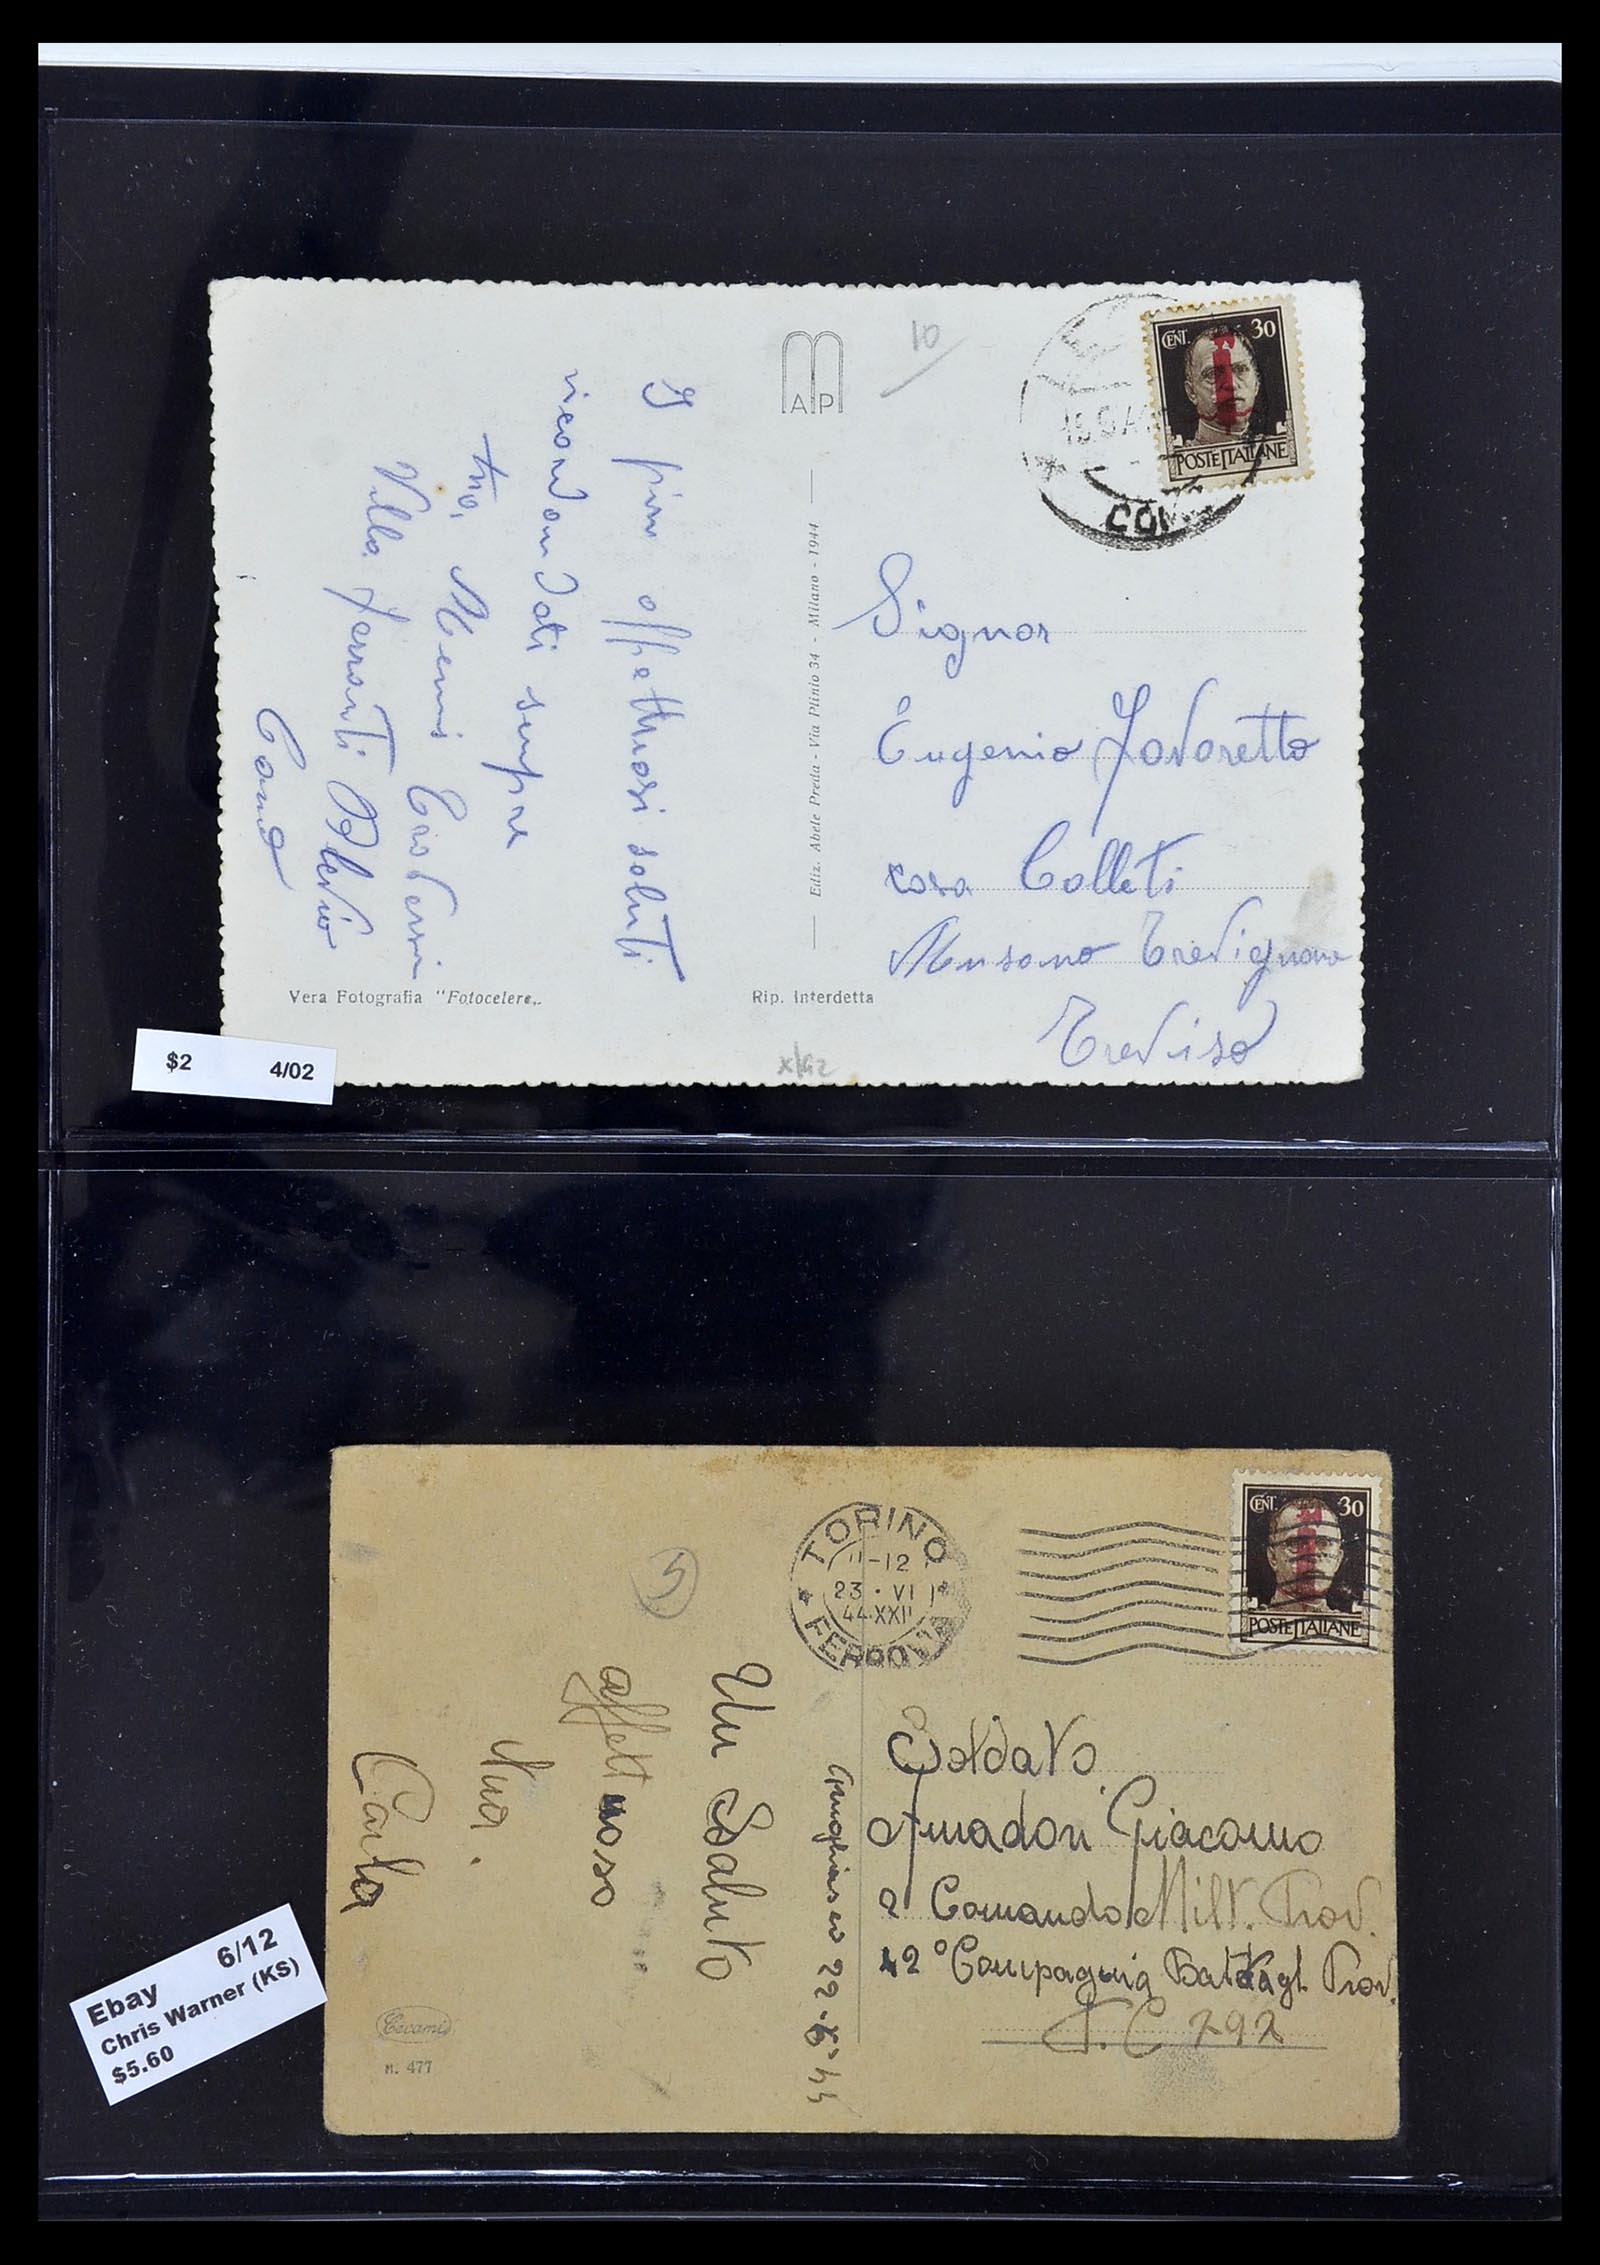 10
CENT. 30
POSTE ITALIANE
COM
AMP
I più affettuosi saluti
ricordandoti sempre
tua, Memi
Villa Ferranti Blevio
Como
Ediz. Abele Preda - Via Plinio 34 - Milano - 1944
Signor
Eugenio Favaretto
casa Colleti
Musano Trevignano
Treviso
Vera Fotografia "Fotocelere„
Rip. Interdetta
$2 4/02
TORINO
11-12
23 · VI
44 XXII
FERROVIA
CENT. 30
POSTE ITALIANE
5
Grugliasco 22-6-44
Un Saluto
affettuoso
Tua.
Carla
Soldato
Amadori Giacomo
2° Comando Milit. Prov.
42° Compagnia Battagl. Prov.
P. C. 792
Cecami
N. 477
Ebay 6/12
Chris Warner (KS)
$5.60